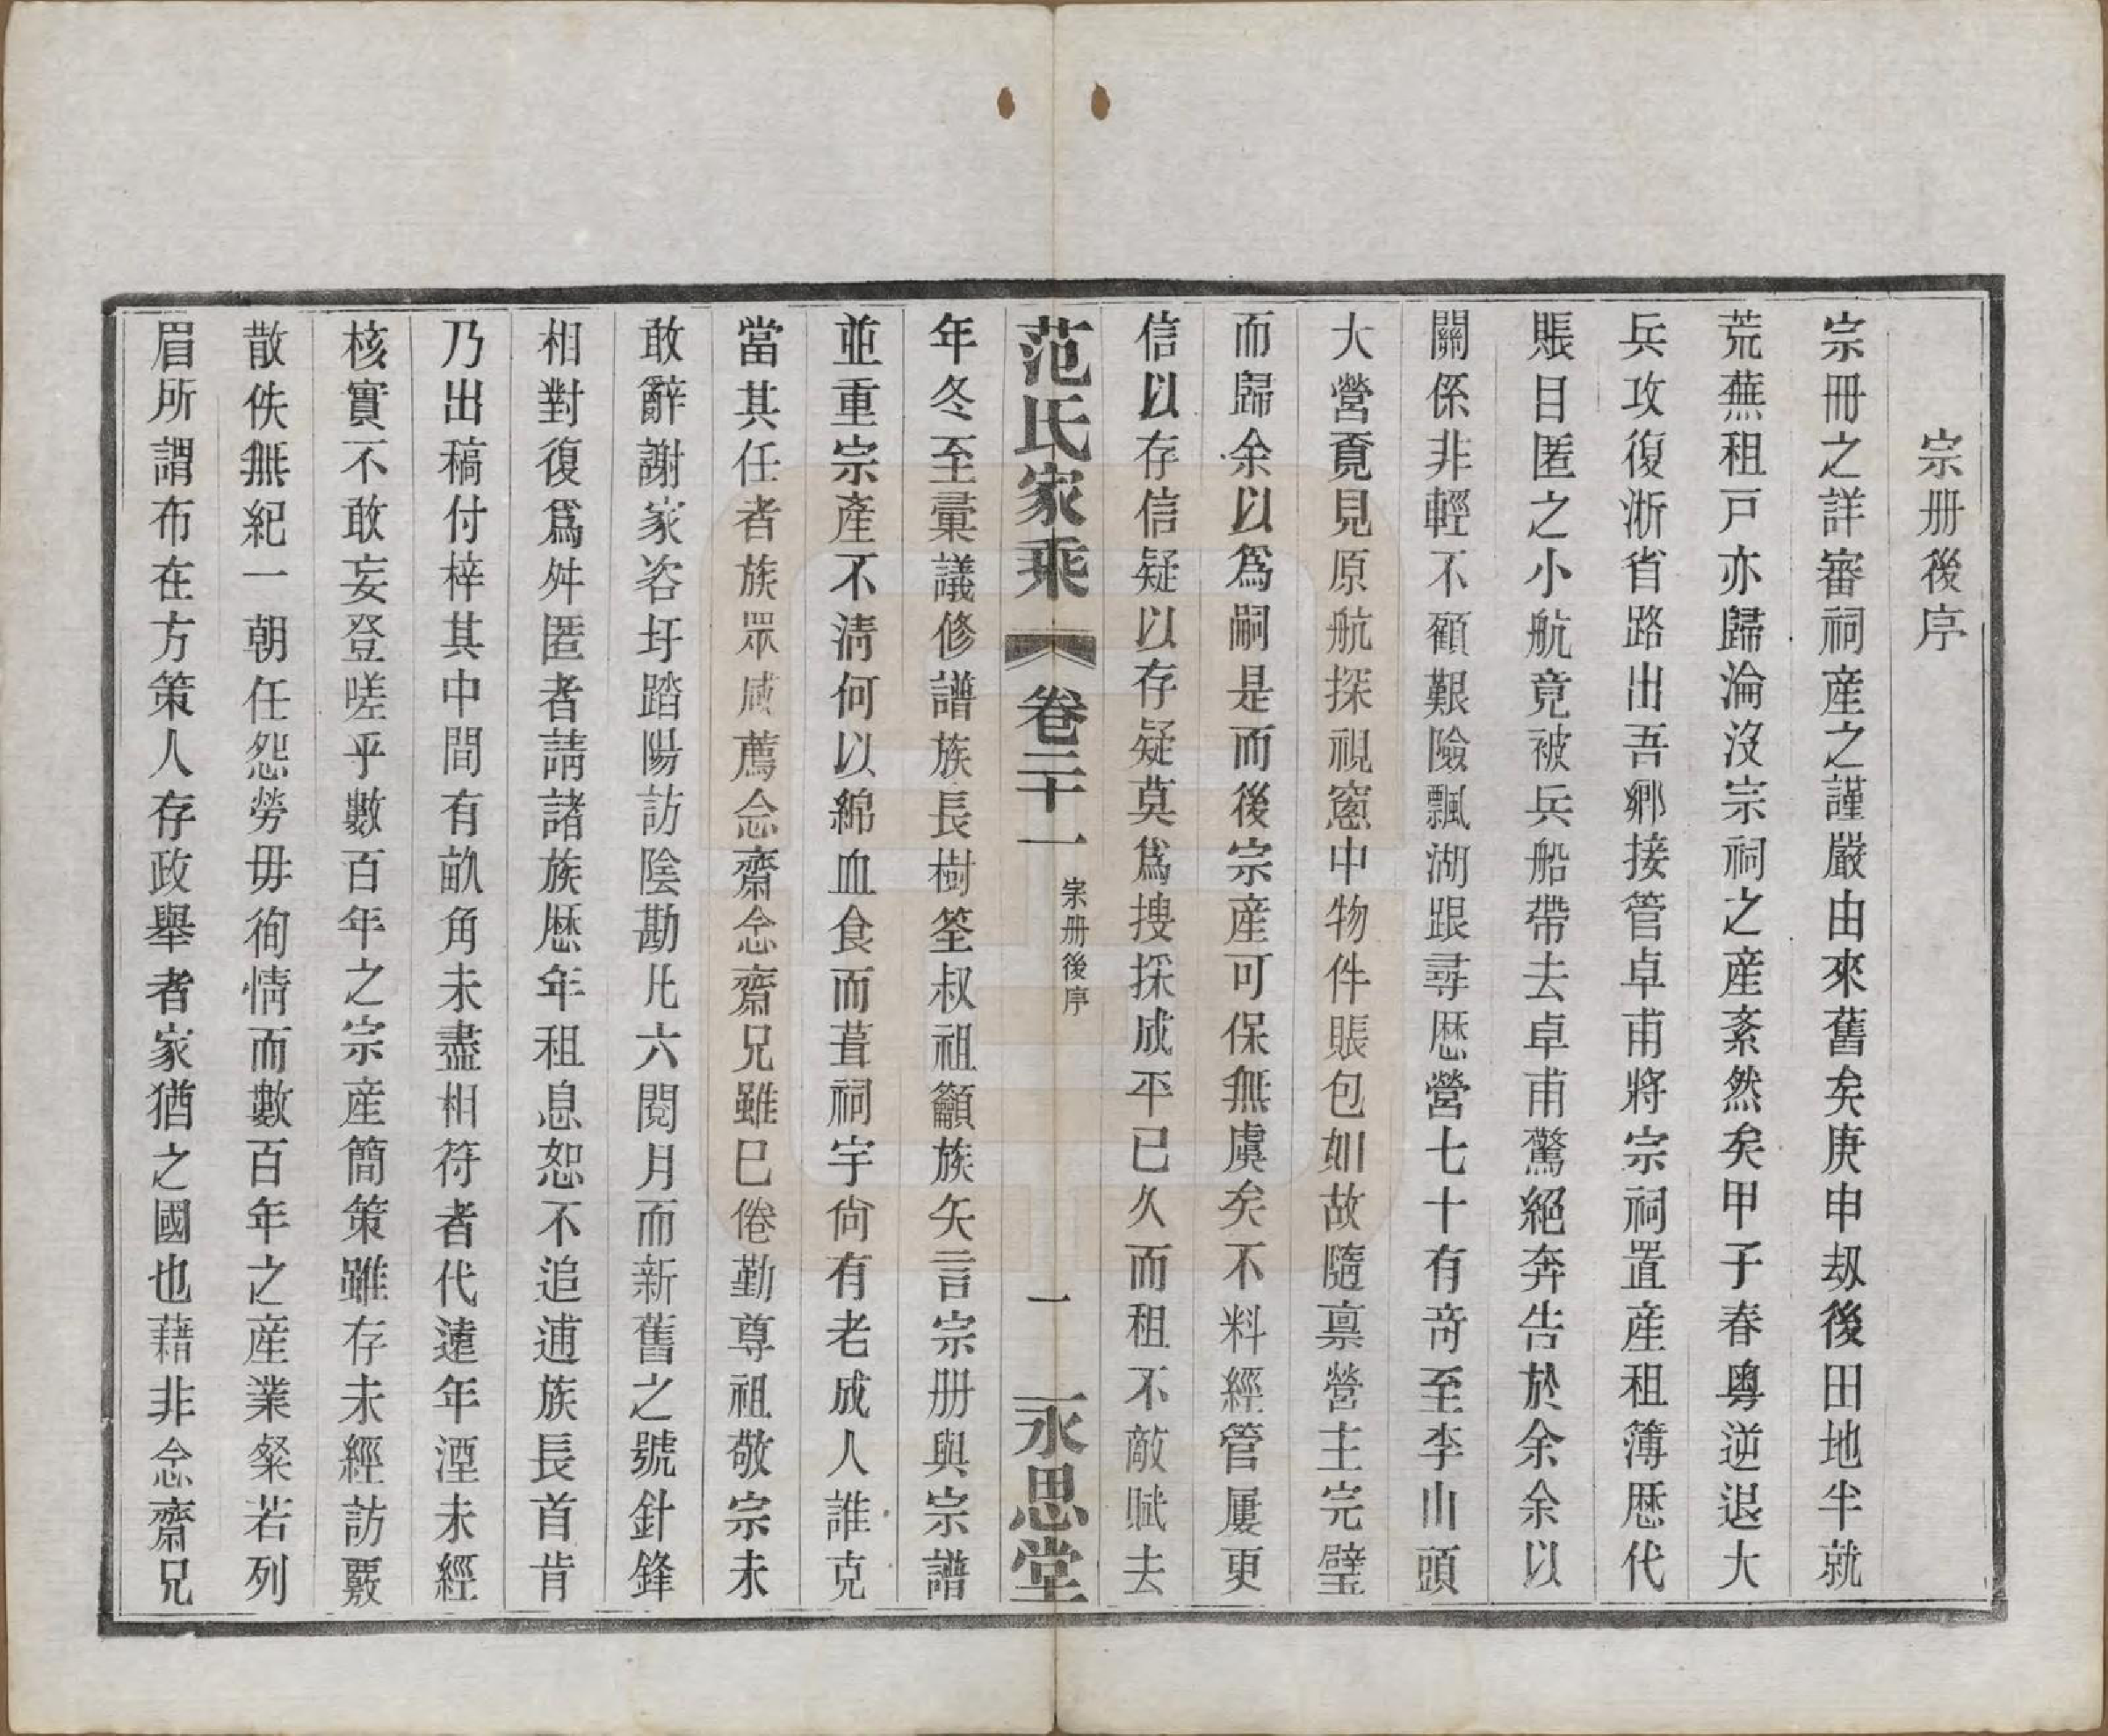 宗册後序
宗冊之詳審祠産之謹嚴由來舊矣庚申刼後田地半就
荒蕪租戸亦歸淪沒宗祠之産紊然矣甲子春粵逆退大
兵攻復浙省路出吾鄉接管卓甫將宗祠置産租簿歷代
賬目匿之小航竟被兵船帶去卓甫驚絕奔告於余余以
關係非輕不顧艱險飄湖跟尋歷營七十有奇至李山頭
大營覔見原航探視窻中物件賬包如故隨禀營主完璧
而歸余以爲嗣是而後宗産可保無虞矣不料經管屢更
信以存信疑以存疑莫爲搜採成平已久而租不敵賦去
范氏家乘 卷三十一 宗册後序 一 永思堂
年冬至彙議修譜族長樹筌叔祖籲族矢言宗册與宗譜
並重宗產不淸何以綿血食而葺祠宇尙有老成人誰克
當其任者族眾咸薦念齋念齋兄雖已倦勤尊祖敬宗未
敢辭謝家咨圩踏陽訪陰勘凡六閱月而新舊之號針鋒
相對復爲舛匿者請諸族歷年租息恕不追逋族長首肯
乃出稿付梓其中間有畝角未盡相符者代遠年湮未經
核實不敢妄登嗟乎數百年之宗産簡策雖存未經訪覈
散佚無紀一朝任怨勞毋徇情而數百年之産業粲若列
眉所謂布在方策人存政舉者家猶之國也藉非念齋兄